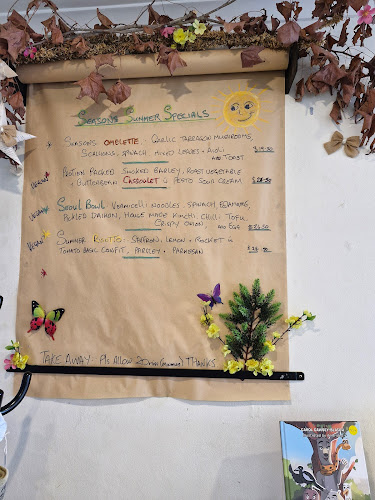 SEASONS SUMMER SPECIALS
SEASONS OMELETTE: GARLIC TARRAGON MUSHROOMS,
SCALLIONS, SPINACH MIXED LEAVES + AIOLI
AND TOAST
VEGAN
PROTEIN PACKED SMOKED BARLEY, ROAST VEGETABLE
+ BUTTERBEAN CASSOULET & PESTO SOUR CREAM
VEGAN
SEOUL BOWL VERMICELLI NOODLES, SPINACH, EDAMAME,
PICKLED DAIKON, HOUSE MADE KIMCHI, CHILLI TOFU,
CRISPY ONION, AND EGG
VEGAN
SUMMER RISOTTO: SAFFRON, LEMON + ROCKET &
TOMATO BASIL CONFIT, PARSLEY + PARMESAN
TAKE AWAY- Pls ALLOW 20min (minimum) THANKS
CAROL RAMSEY-BLACK